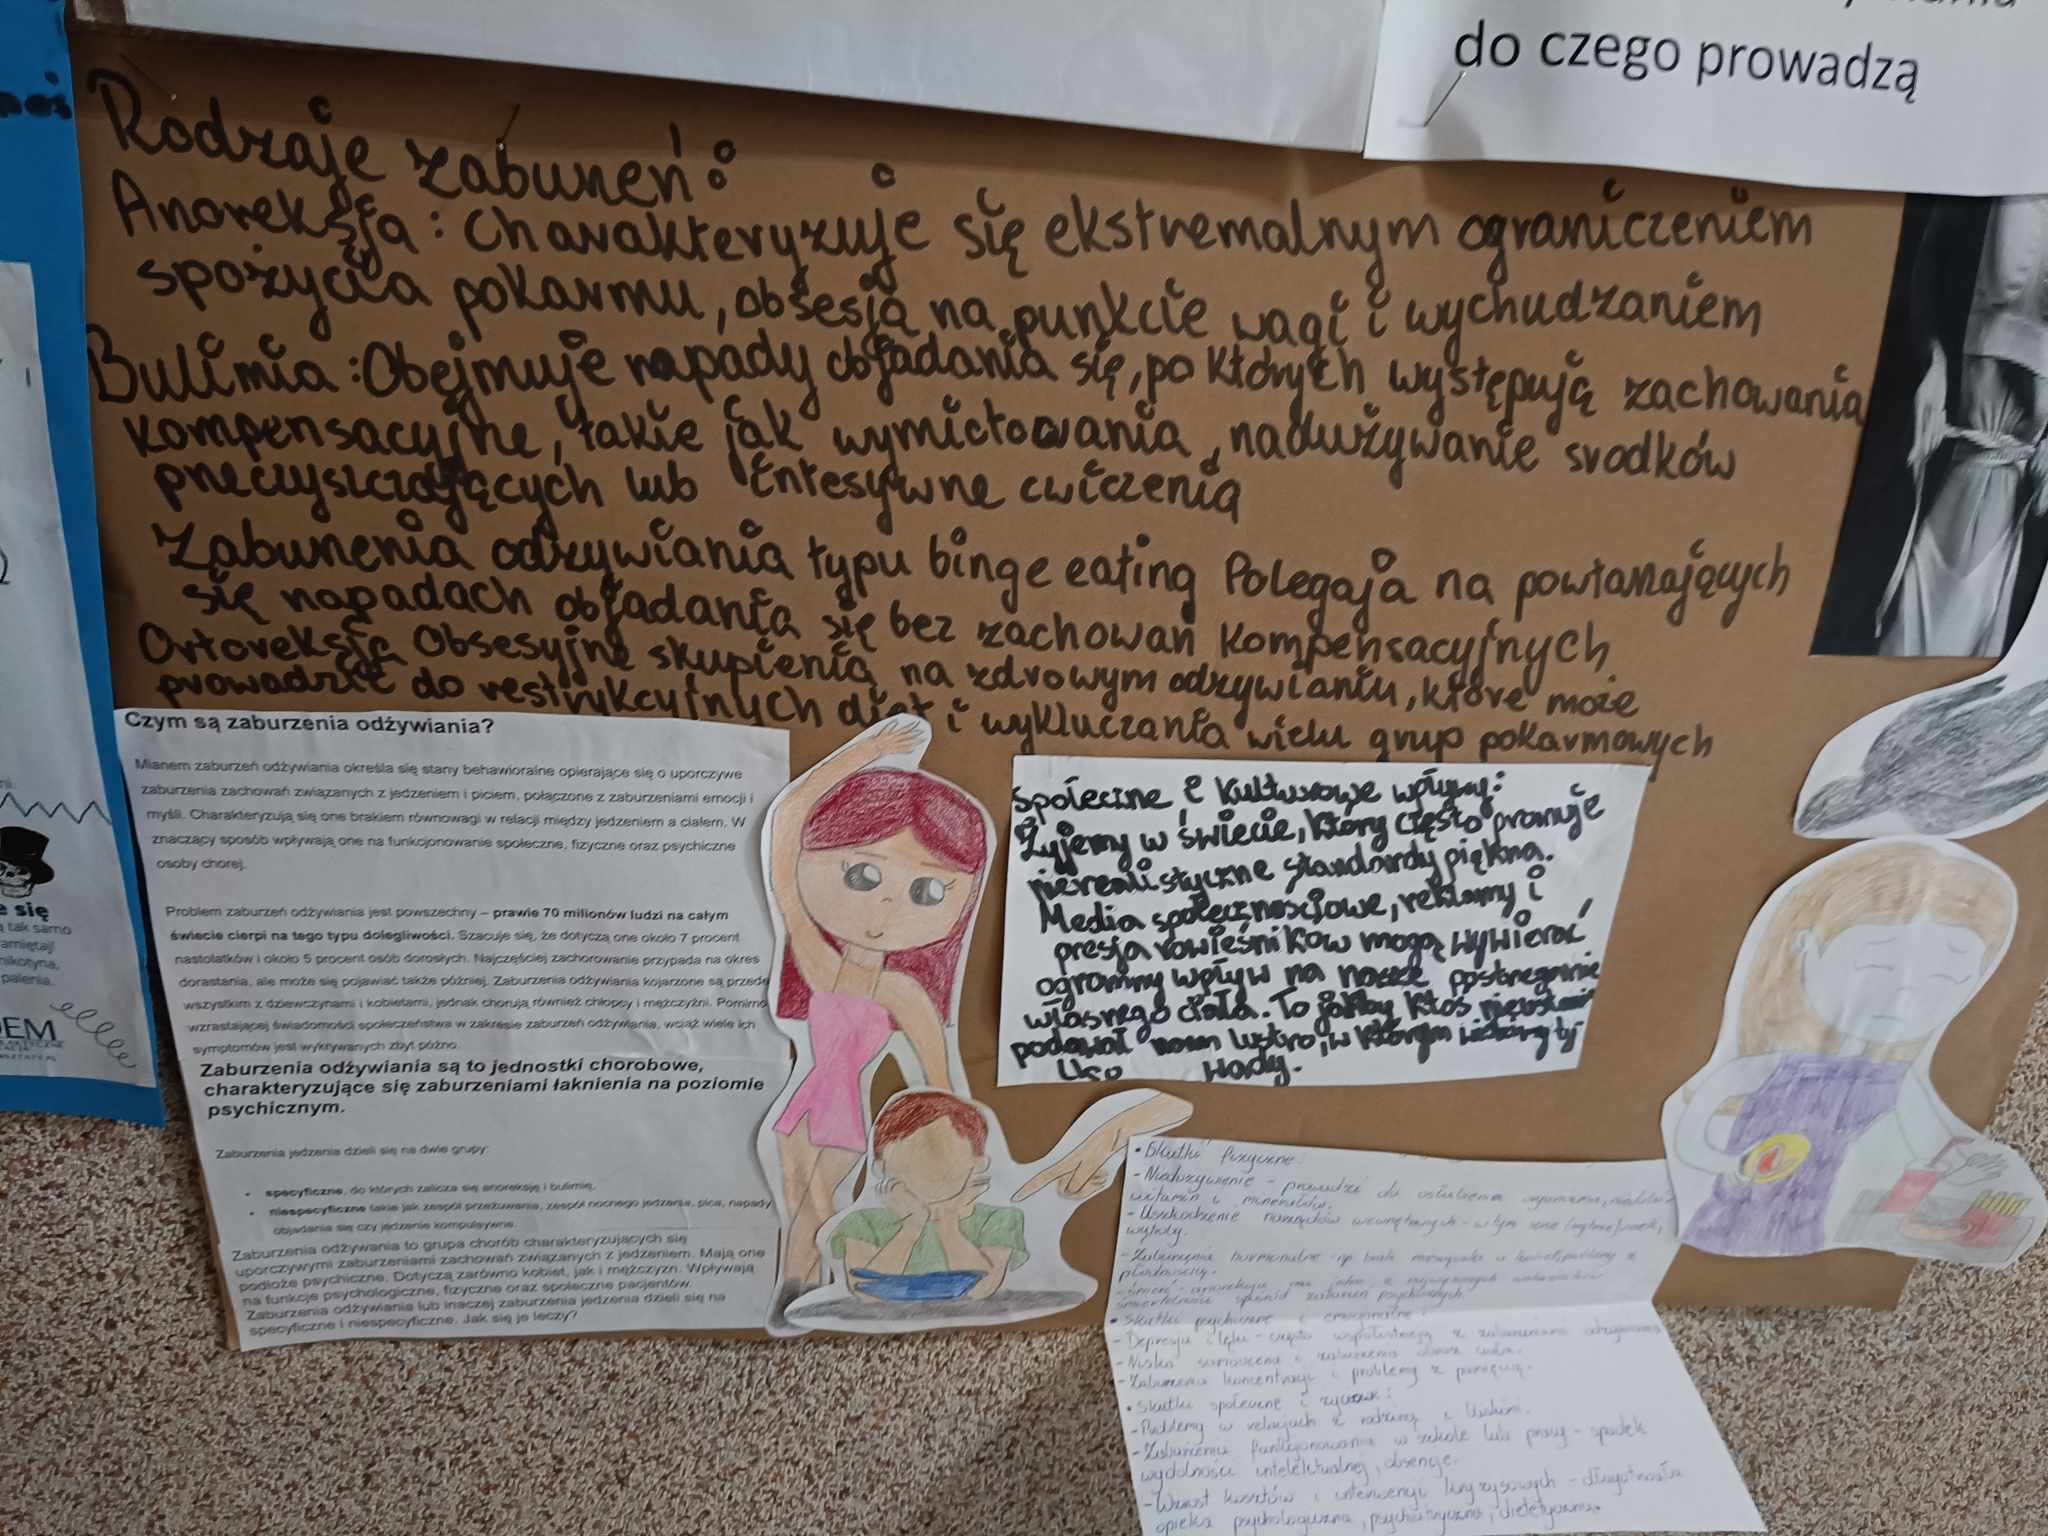 do czego prowadzą
Rodzaje zaburzeń:
Anoreksja: Charakteryzuje się ekstremalnym ograniczeniem
spożycia pokarmu, obsesją na punkcie wagi i wychudzaniem
Bulimia: Obejmuje napady objadania się, po których występują zachowania
kompensacyjne, takie jak wymiotowania, nadużywanie srodków
przeczyszczających lub intesywne cwiczenia
Zaburzenia odzywiania typu binge eating Polegają na powtarzających
się napadach objadania się bez zachowań kompensacyjnych
Ortoreksja Obsesyjne skupienia na zdrowym odzywianiu, które może
prowadzić do restrykcyjnych diet i wykluczania wielu grup pokarmowych
Czym są zaburzenia odżywiania?
Mianem zaburzeń odżywiania określa się stany behawioralne opierające się o uporczywe
zaburzenia zachowań związanych z jedzeniem i piciem, połączone z zaburzeniami emocji i
myśli. Charakteryzują się one brakiem równowagi w relacji między jedzeniem a ciałem. W
znaczący sposób wpływają one na funkcjonowanie społeczne, fizyczne oraz psychiczne
osoby chorej.
Problem zaburzeń odżywiania jest powszechny – prawie 70 milionów ludzi na całym
świecie cierpi na tego typu dolegliwości. Szacuje się, że dotyczą one około 7 procent
nastolatków i około 5 procent osób dorosłych. Najczęściej zachorowanie przypada na okres
dorastania, ale może się pojawiać także później. Zaburzenia odżywiania kojarzone są przede
wszystkim z dziewczynami i kobietami, jednak chorują również chłopcy i mężczyźni. Pomimo
wzrastającej świadomości społeczeństwa w zakresie zaburzeń odżywiania, wciąż wiele ich
symptomów jest wykrywanych zbyt późno.
Zaburzenia odżywiania są to jednostki chorobowe,
charakteryzujące się zaburzeniami łaknienia na poziomie
psychicznym.
Zaburzenia jedzenia dzieli się na dwie grupy:
• specyficzne, do których zalicza się anoreksję i bulimię,
• niespecyficzne takie jak zespół przeżuwania, zespół nocnego jedzenia, pica, napady
objadania się czy jedzenie kompulsywne.
Zaburzenia odżywiania to grupa chorób charakteryzujących się
uporczywymi zaburzeniami zachowań związanych z jedzeniem. Mają one
podłoże psychiczne. Dotyczą zarówno kobiet, jak i mężczyzn. Wpływają
na funkcje psychologiczne, fizyczne oraz społeczne pacjentów.
Zaburzenia odżywiania lub inaczej zaburzenia jedzenia dzieli się na
specyficzne i niespecyficzne. Jak się je leczy?
Społeczne i kulturowe wpływy:
Żyjemy w świecie, który często promuje
nierealistyczne standardy piękna.
Media społecznościowe, reklamy i
presja rowieśnikow mogą wywierać
ogromny wpływ na nasze postrzeganie
własnego ciała. To jakby ktoś nieustannie
podawał nam lustro, w którym widzimy tylko
wady.
• Skutki fizyczne:
- Niedożywienie - prowadzi do osłabienia organizmu,
witamin i minerałów.
- Uszkodzenie narządów wewnętrznych - w tym serca,
wątroby.
- Zaburzenia hormonalne - np brak
płodnością.
- Śmierć - anoreksja ma jeden z najwyższych
śmiertelności spośród zaburzeń psychicznych.
• Skutki psychiczne i emocjonalne:
- Depresja i lęki - często współistnieją z zaburzeniami odżywiania
- Niska samoocena i zaburzenia obraz ciała.
- Zaburzenia koncentracji i problemy z pamięcią.
• Skutki społeczne i życiowe:
- Problemy w relacjach z rodziną i bliskimi.
- Zaburzenia funkcjonowania w szkole lub pracy - spadek
wydolności intelektualnej, absencje.
- Wzrost kosztów i interwencji kryzysowych - długotrwała
opieka psychologiczna, psychiatryczna, dietetyczna.
e się
tak samo
amiętaj!
nikotyna,
palenia.
DEM